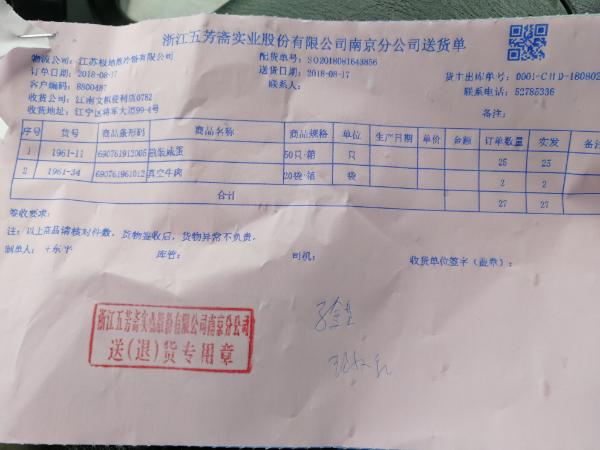 浙江五芳斋实业股份有限公司南京分公司送货单
物流公司：江苏极地熊冷链有限公司 配货单号：SO2018081643856
订单日期：2018-08-17 送货日期：2018-08-17 货主出库单号：0001-CHD-180802
客户编码：8800487 联系人： 联系电话：52785336
收货公司：江南文枢便利店0782 备注：
收货地址：江宁区将军大道99-4号
序号 货号 商品条形码 商品名称 商品规格 单位 生产日期 单价 金额 订单数量 实发 备注
1 1961-11 690761912005 散装咸蛋 50只/箱 只 25 25
2 1961-34 690761961012 真空牛肉 20袋/箱 袋 2 2
合计 27 27
签收要求：
注：以上商品请核对件数，货物签收后，货物异常不负责。
制单人： 库管： 司机： 收货单位签字（盖章）：
浙江五芳斋实业股份有限公司南京分公司
送（退）货专用章